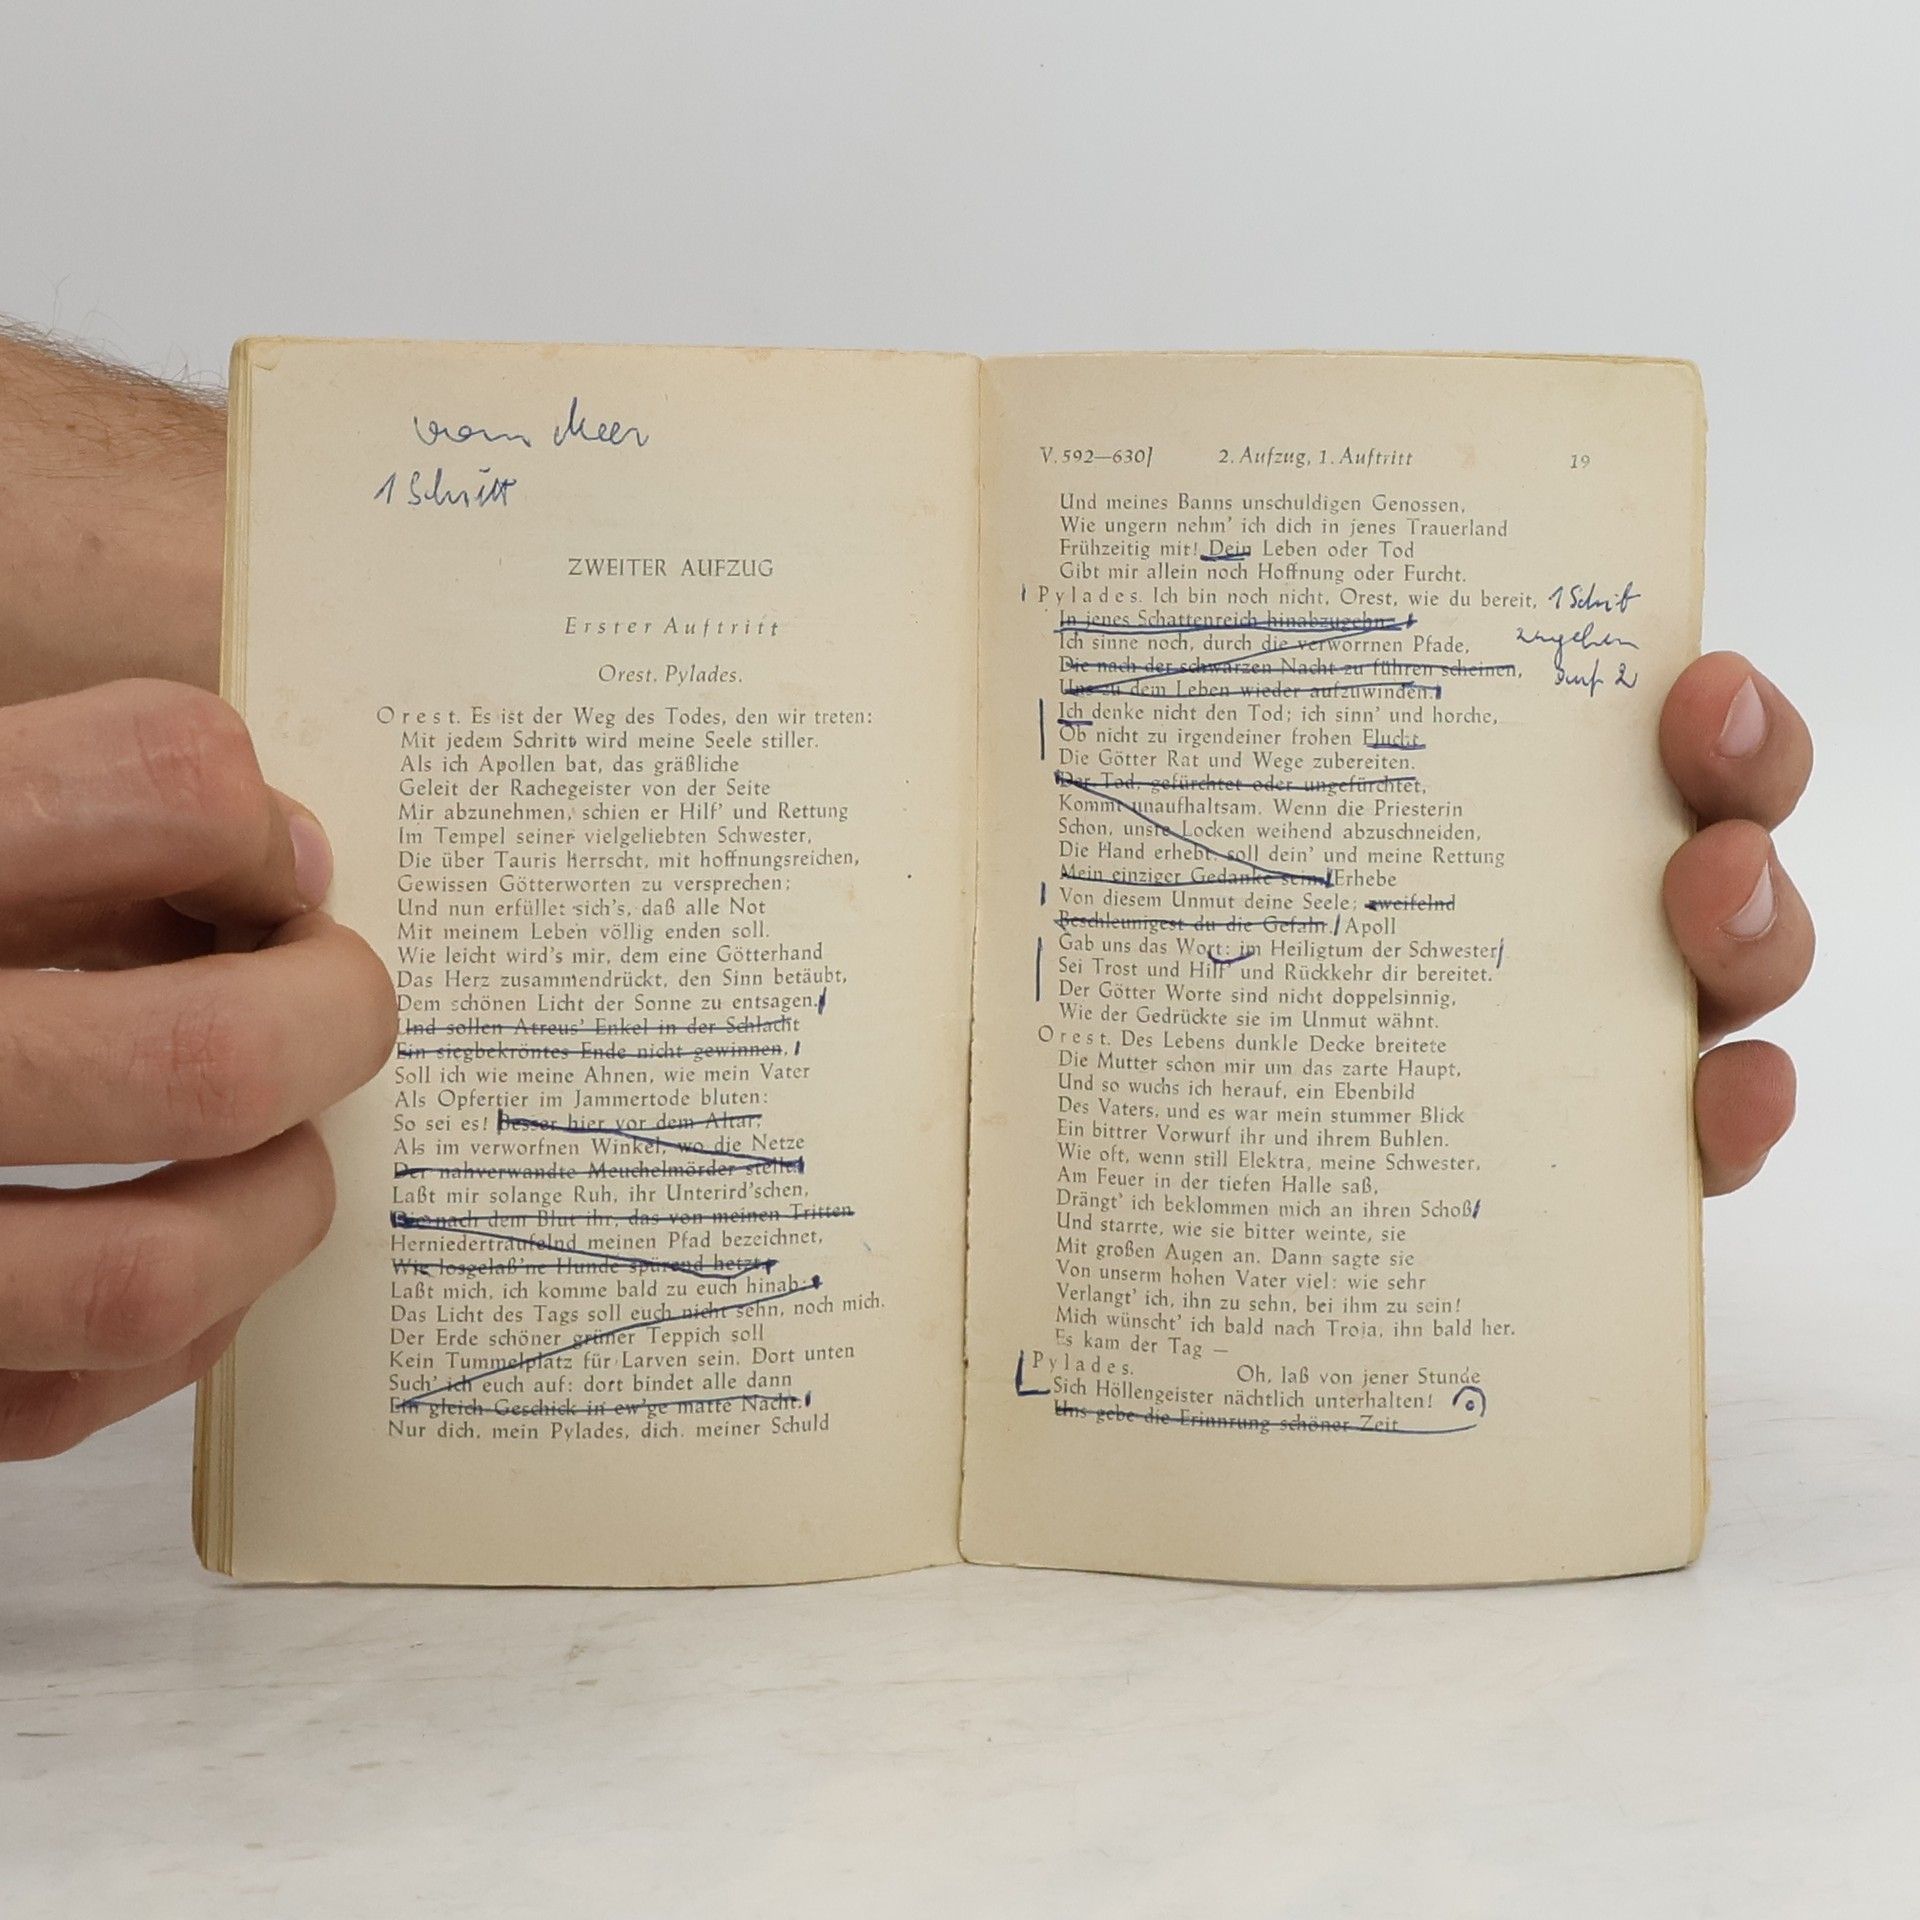 vom Meer
1 Schritt
ZWEITER AUFZUG
Erster Auftritt
Orest. Pylades.
Orest. Es ist der Weg des Todes, den wir treten:
Mit jedem Schritt wird meine Seele stiller.
Als ich Apollen bat, das gräßliche
Geleit der Rachegeister von der Seite
Mir abzunehmen, schien er Hilf' und Rettung
Im Tempel seiner vielgeliebten Schwester,
Die über Tauris herrscht, mit hoffnungsreichen,
Gewissen Götterworten zu versprechen;
Und nun erfüllet sich's, daß alle Not
Mit meinem Leben völlig enden soll.
Wie leicht wird's mir, dem eine Götterhand
Das Herz zusammendrückt, den Sinn betäubt,
Dem schönen Licht der Sonne zu entsagen.
Und sollen Atreus' Enkel in der Schlacht
Ein siegbekröntes Ende nicht gewinnen,
Soll ich wie meine Ahnen, wie mein Vater
Als Opfertier im Jammertode bluten:
So sei es! Besser hier vor dem Altar,
Als im verworfnen Winkel, wo die Netze
Der nahverwandte Meuchelmörder stellt.
Laßt mir solange Ruh, ihr Unterird'schen,
Die nach dem Blut ihr, das von meinen Tritten
Herniederträufelnd meinen Pfad bezeichnet,
Wie losgelaß'ne Hunde spürend hetzt.
Laßt mich, ich komme bald zu euch hinab:
Das Licht des Tags soll euch nicht sehn, noch mich.
Der Erde schöner grüner Teppich soll
Kein Tummelplatz für Larven sein. Dort unten
Such' ich euch auf: dort bindet alle dann
Ein gleich Geschick in ew'ge matte Nacht.
Nur dich, mein Pylades, dich, meiner Schuld
V. 592—630] 2. Aufzug, 1. Auftritt 19
Und meines Banns unschuldigen Genossen,
Wie ungern nehm' ich dich in jenes Trauerland
Frühzeitig mit! Dein Leben oder Tod
Gibt mir allein noch Hoffnung oder Furcht.
Pylades. Ich bin noch nicht, Orest, wie du bereit, 1 Schritt
In jenes Schattenreich hinabzugehn.
zugehen
Ich sinne noch, durch die verworrnen Pfade,
Die nach der schwarzen Nacht zu führen scheinen,
auf 2
Uns zu dem Leben wieder aufzuwinden.
Ich denke nicht den Tod; ich sinn' und horche,
Ob nicht zu irgendeiner frohen Flucht
Die Götter Rat und Wege zubereiten.
Der Tod, gefürchtet oder ungefürchtet,
Kommt unaufhaltsam. Wenn die Priesterin
Schon, unsre Locken weihend abzuschneiden,
Die Hand erhebt, soll dein' und meine Rettung
Mein einziger Gedanke sein. Erhebe
Von diesem Unmut deine Seele; zweifelnd
Beschleunigest du die Gefahr. Apoll
Gab uns das Wort: im Heiligtum der Schwester
Sei Trost und Hilf' und Rückkehr dir bereitet.
Der Götter Worte sind nicht doppelsinnig,
Wie der Gedrückte sie im Unmut wähnt.
Orest. Des Lebens dunkle Decke breitete
Die Mutter schon mir um das zarte Haupt,
Und so wuchs ich herauf, ein Ebenbild
Des Vaters, und es war mein stummer Blick
Ein bittrer Vorwurf ihr und ihrem Buhlen.
Wie oft, wenn still Elektra, meine Schwester,
Am Feuer in der tiefen Halle saß,
Drängt' ich beklommen mich an ihren Schoß
Und starrte, wie sie bitter weinte, sie
Mit großen Augen an. Dann sagte sie
Von unserm hohen Vater viel: wie sehr
Verlangt' ich, ihn zu sehn, bei ihm zu sein!
Mich wünscht' ich bald nach Troja, ihn bald her.
Es kam der Tag —
Pylades. Oh, laß von jener Stunde
Sich Höllengeister nächtlich unterhalten!
Uns gebe die Erinnrung schöner Zeit